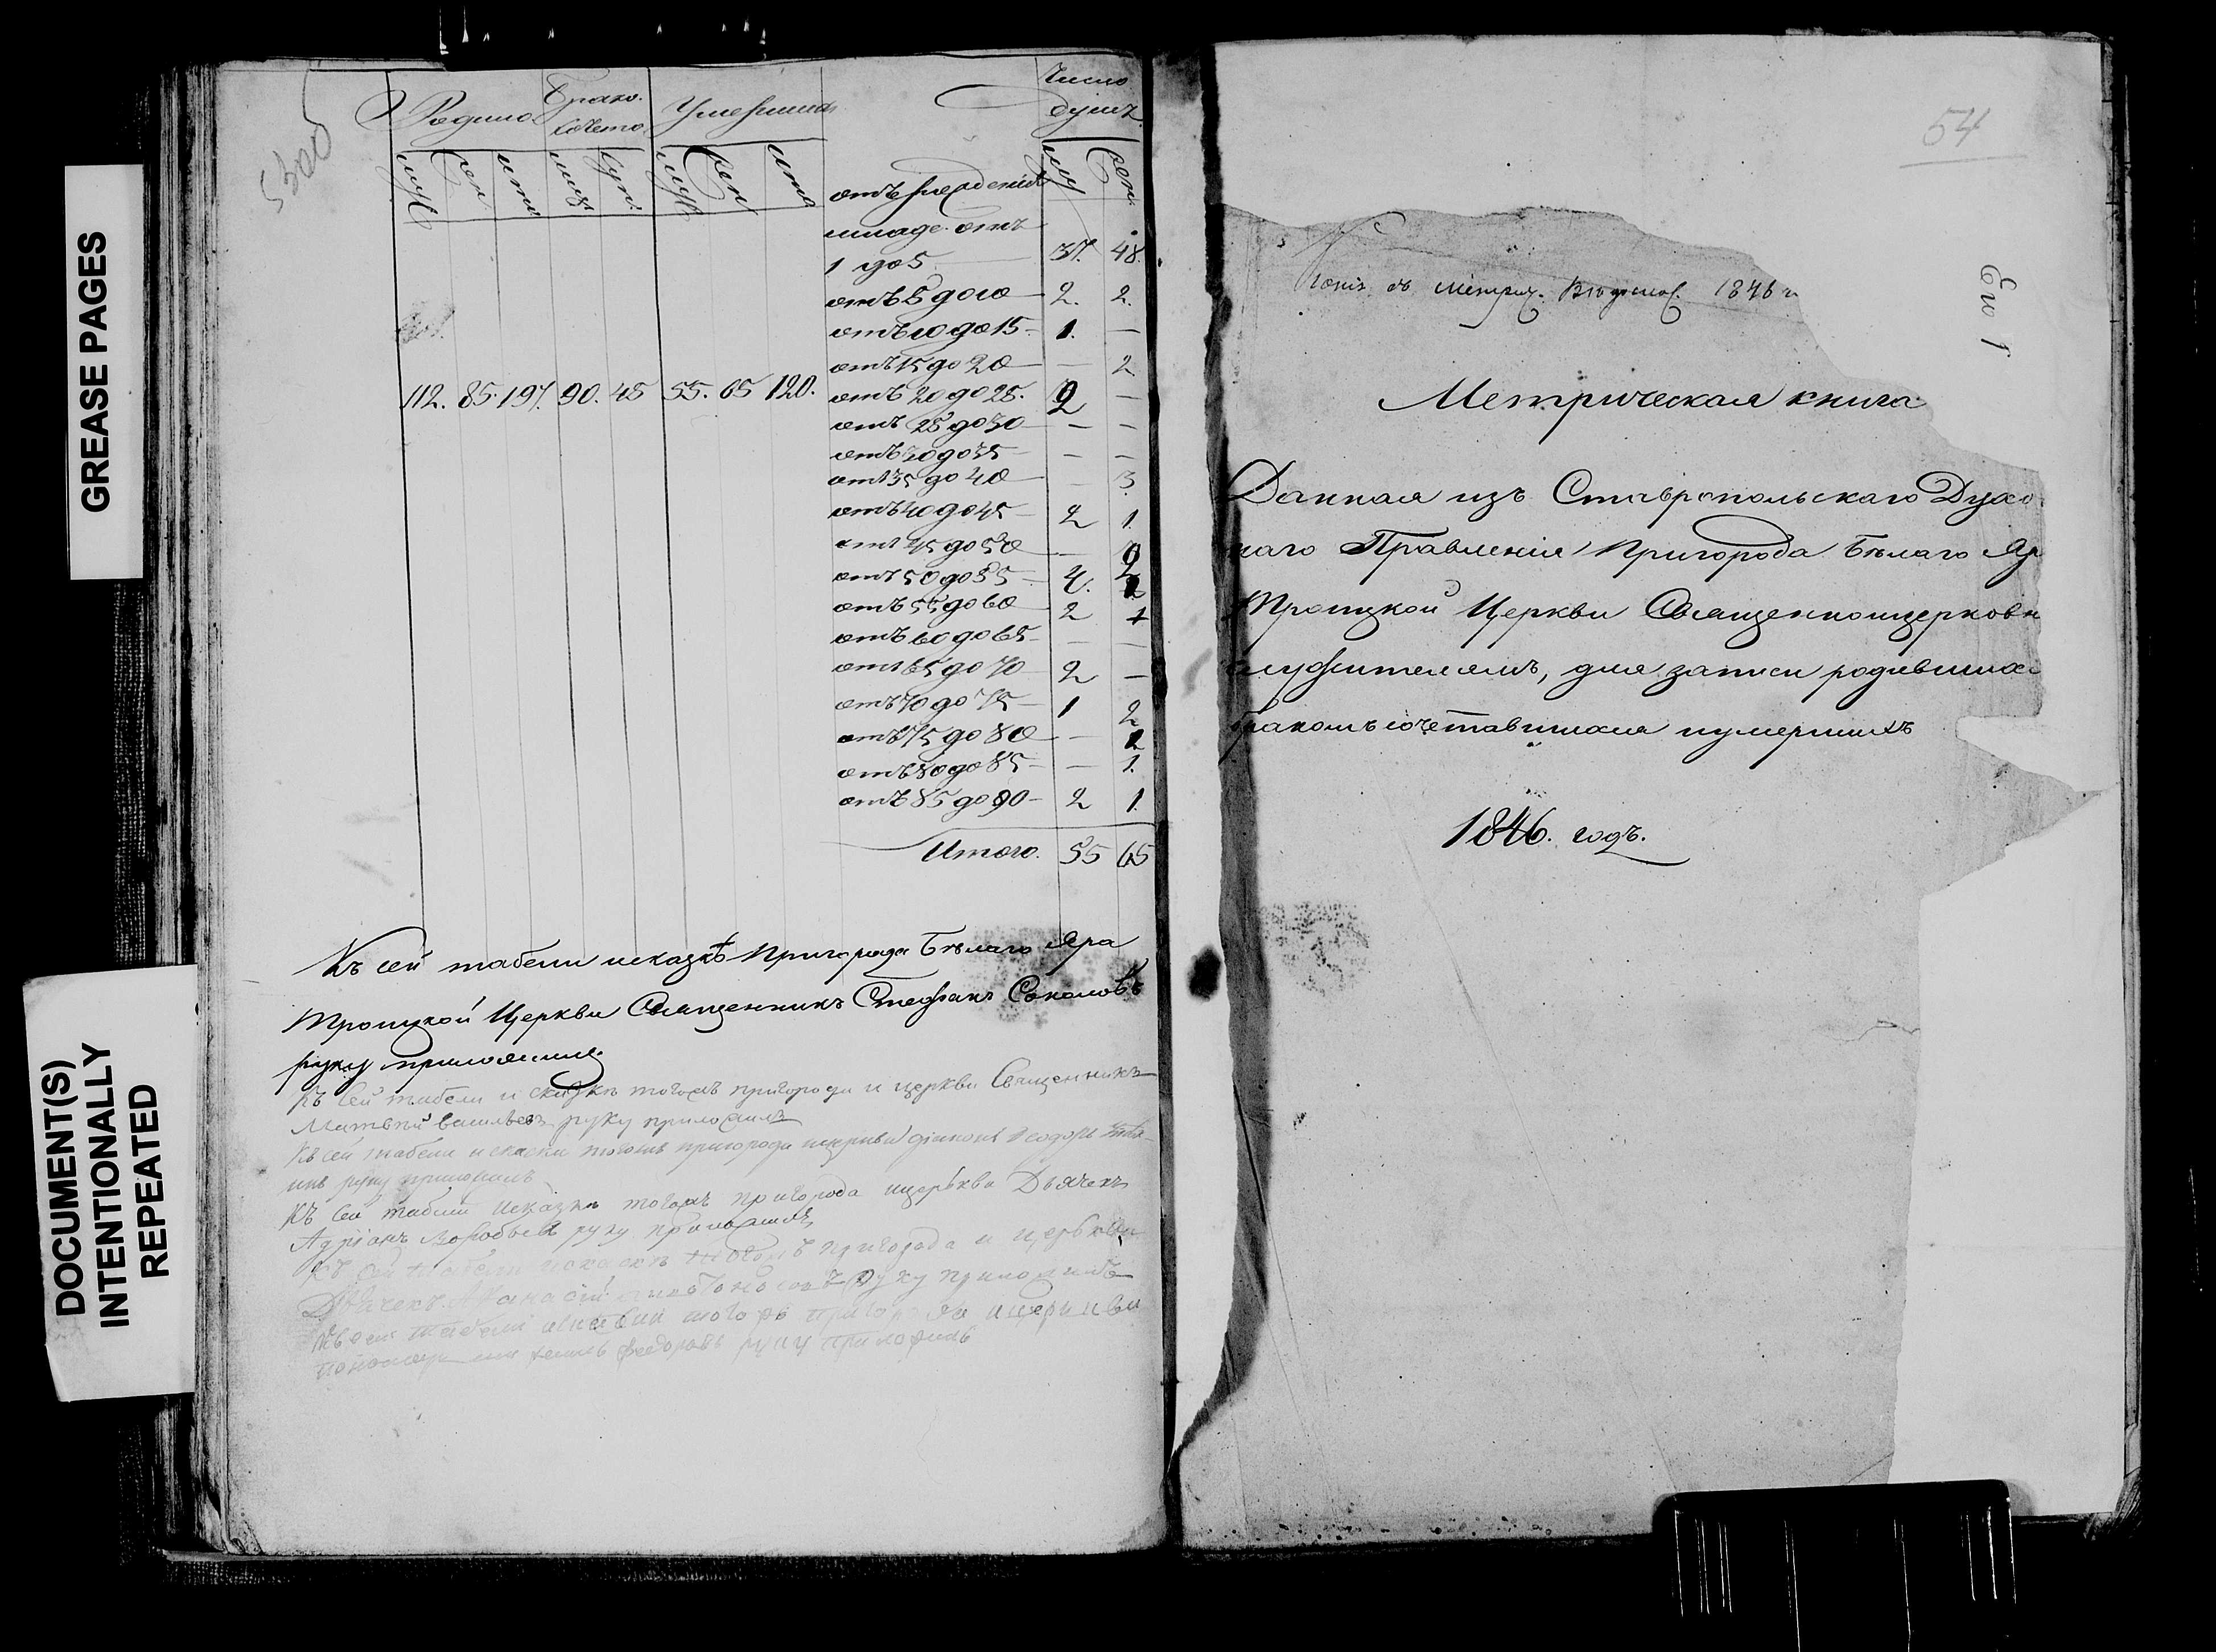 GREASE PAGES
DOCUMENT(S)
INTENTIONALLY
REPEATED
Родило
Брако.
сочето
Умершихъ
Число
душъ.
муж жен итог муж суп. муж жен итог
му жен
отъ рожденія
младе. отъ
1 до 5 37. 48.
отъ 5 до 10 2. 2.
отъ 10 до 15 1. —
отъ 15 до 20 — 2
112. 85. 197. 90. 45 55. 65 120. отъ 20 до 25. 2 —
отъ 25 до 30 — —
отъ 30 до 35 — —
отъ 35 до 40 — 3.
отъ 40 до 45 2 1.
отъ 45 до 50 — 2
отъ 50 до 55
отъ 55 до 60 2
отъ 60 до 65 — —
отъ 65 до 70 2 —
отъ 70 до 75 1 2
отъ 75 до 80 —
отъ 80 до 85 — 1.
отъ 85 до 90 2 1.
Итого. 55 65
Къ сей табели и сказкѣ Пригорода Бѣлаго Яра
Троицкой Церкви Священникъ Стефанъ Соколовъ
руку приложилъ
Къ сей табели и сказкѣ тогожъ пригорода и церкви Священникъ
Матвѣй Васильевъ руку приложилъ
Къ сей табели и сказки тогожъ пригорода и церкви діаконъ Феодоръ
руку приложилъ
Къ сей табели и сказкѣ тогожъ пригорода и церькви Дьячекъ
Адріанъ Воробьевъ руку приложилъ
Къ сей табели и сказкѣ тогожъ пригорода и церькви
Дьячекъ Афанасій руку приложилъ
Къ сей табели тогожъ пригорода и церкви
пономарь Федоровъ руку приложилъ
54
Копія съ Метрич. Вѣдомос. 1846 г.
Метрическая книга
Данная изъ Ставропольскаго Духо
наго Правленія Пригорода Бѣлаго Яр
Троицкой Церкви Священноцерковн
служителямъ, для записи родившихс
бракомъ сочетавшихся и умершихъ
1846. годъ.